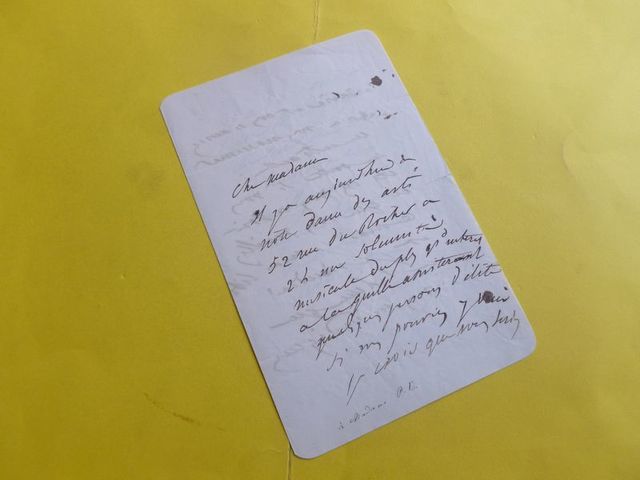 Che madame
Il y a aujourd'hui à
notre dame des arts
52 rue du Rocher a
2 h une solennité
musicale du plus gd interet
a laquelle assisteront
quelques persons d'élite
Si vous pouviez y venir
je crois que vous
à Madame P. D.